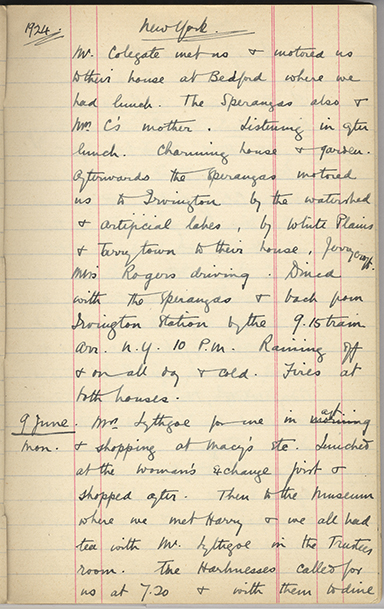 1924. New York.
Mr. Colegate met us & motored us
to their house at Bedford where we
had lunch. The Speranzas also &
Mrs C's mother. Listening in after
lunch. Charming house & garden.
Afterwards the Speranzas motored
us to Irvington by the watershed
& artificial lakes, by White Plains
& Tarrytown to their house, Ferrycroft.
Miss Rogers driving. Dined
with the Speranzas & back from
Irvington Station by the 9.15 train
arr. N.Y. 10 P.M. Raining off
& on all day & cold. Fires at
both houses.
9 June. Mrs. Lythgoe for me in
Mon. & shopping at Macy's etc. Lunched
at the Woman's Exchange first &
shopped after. Then to the Museum
where we met Harry & we all had
tea with Mr. Lythgoe in the Trustees
room. The Harknesses called for
us at 7.20 & with them to dine